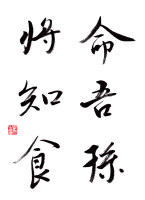 命吾孫
將知食